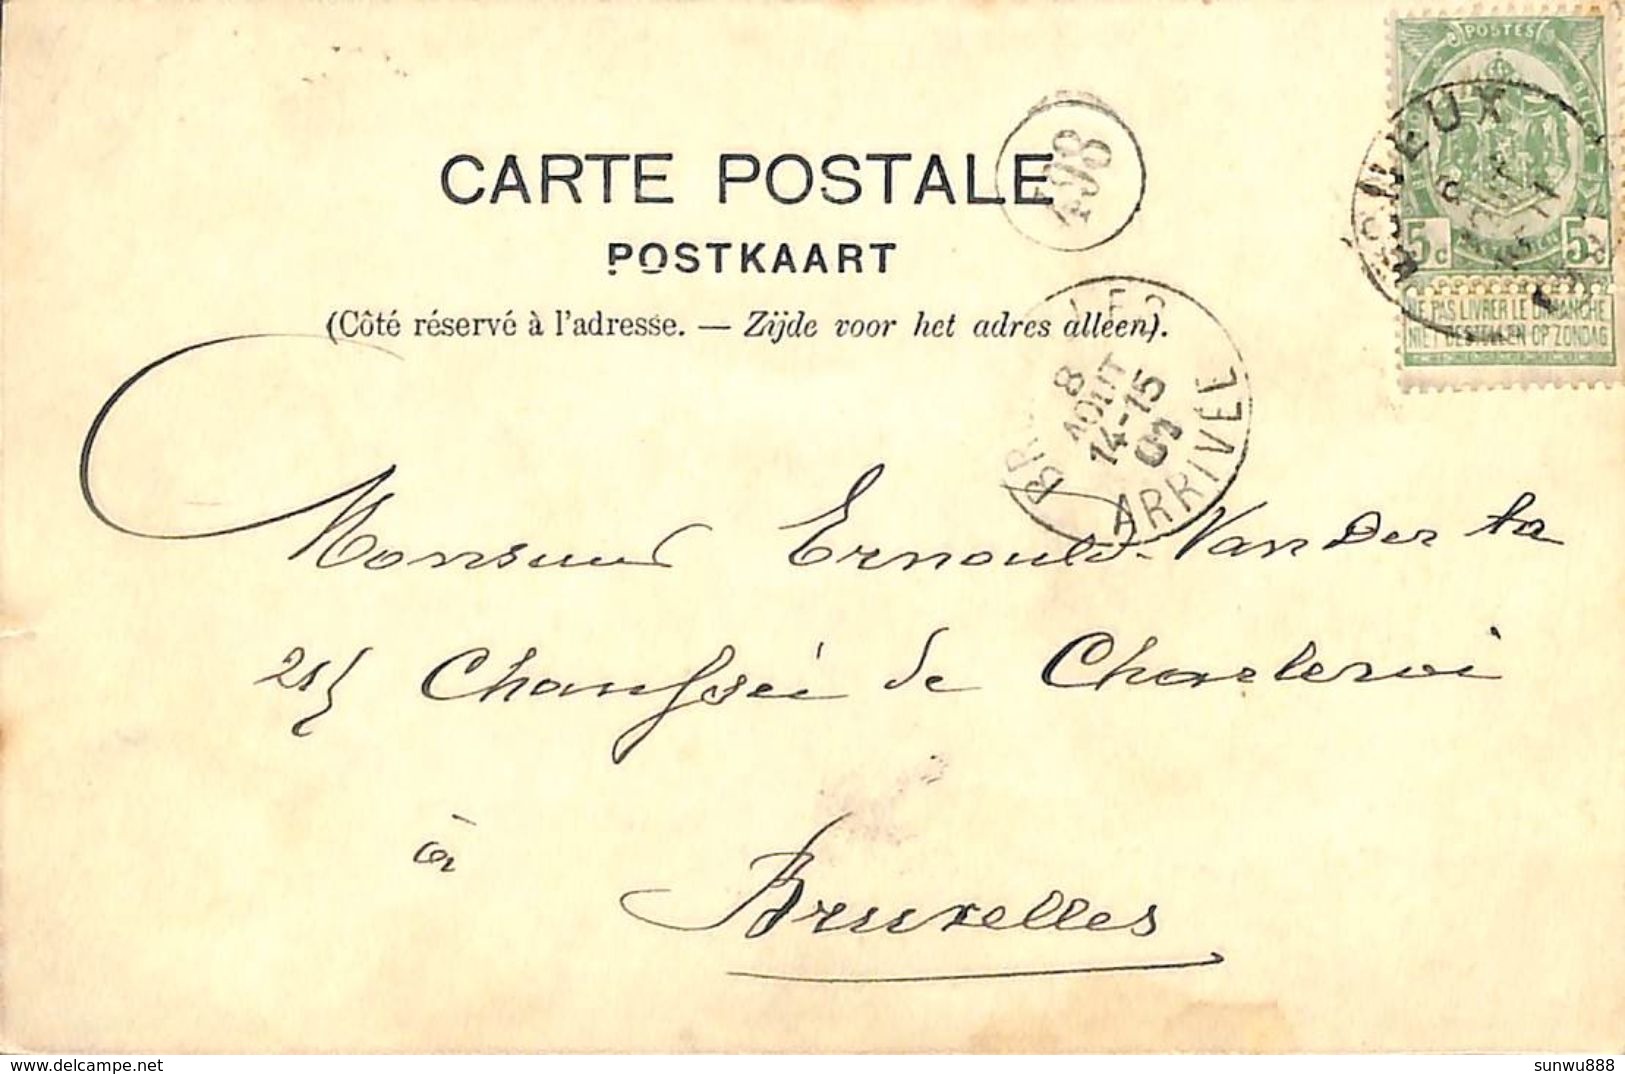 POSTES
5c 5c
NE PAS LIVRER LE DIMANCHE
NIET BESTELLEN OP ZONDAG
498
CARTE POSTALE
POSTKAART
(Côté réservé à l'adresse. — Zijde voor het adres alleen).
8
AOUT
14-15
01
ARRIVÉE
Monsieur Ernould-Vander
Chaussée de Charleroi
à
Bruxelles
delcampe.net
sunwu888